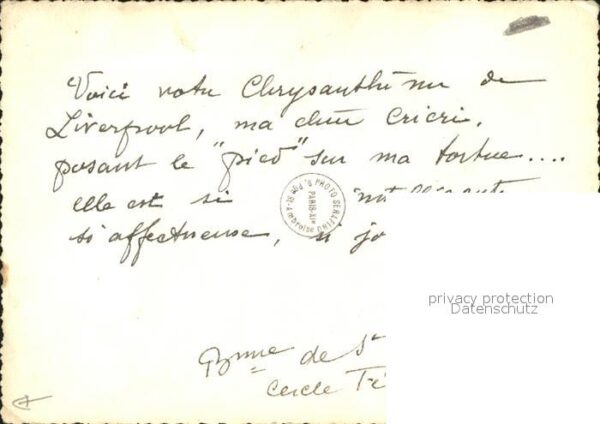 Voici votre Chrysanthème de
Liverpool, ma chère Cricri,
posant le "pied" sur ma tortue....
elle est si
si affectueuse, si jo
PHOTO SERAFINO
PARIS-XIe
privacy protection
Datenschutz
de St
Cercle